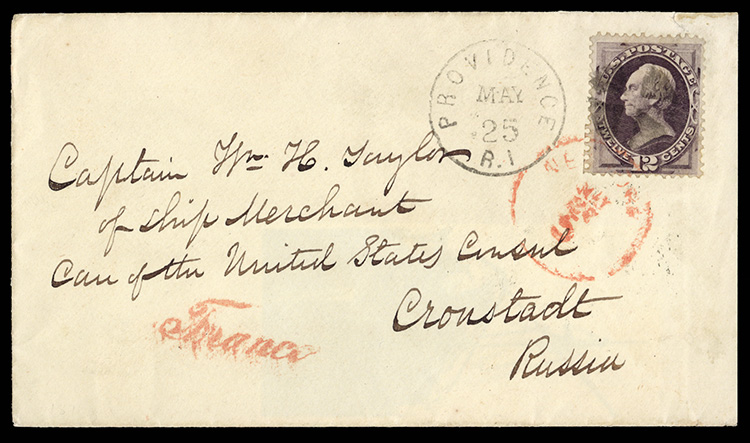 U.S. POSTAGE
TWELVE 12 CENTS
PROVIDENCE
MAY
25
R.I.
NE
Captain Wm H. Taylor
of ship Merchant
Care of the United States Consul
Cronstadt
Russia
Franco